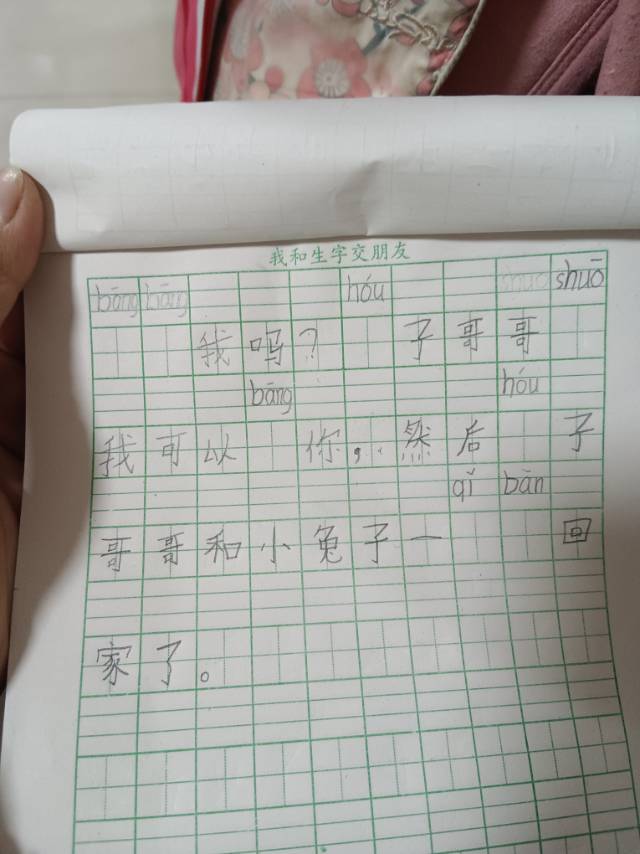 我和生字交朋友
bāng bāng hóu shuō shuō
我吗？子哥哥
bāng hóu
我可以你，然后子
qǐ bān
哥哥和小兔子一回
家了。